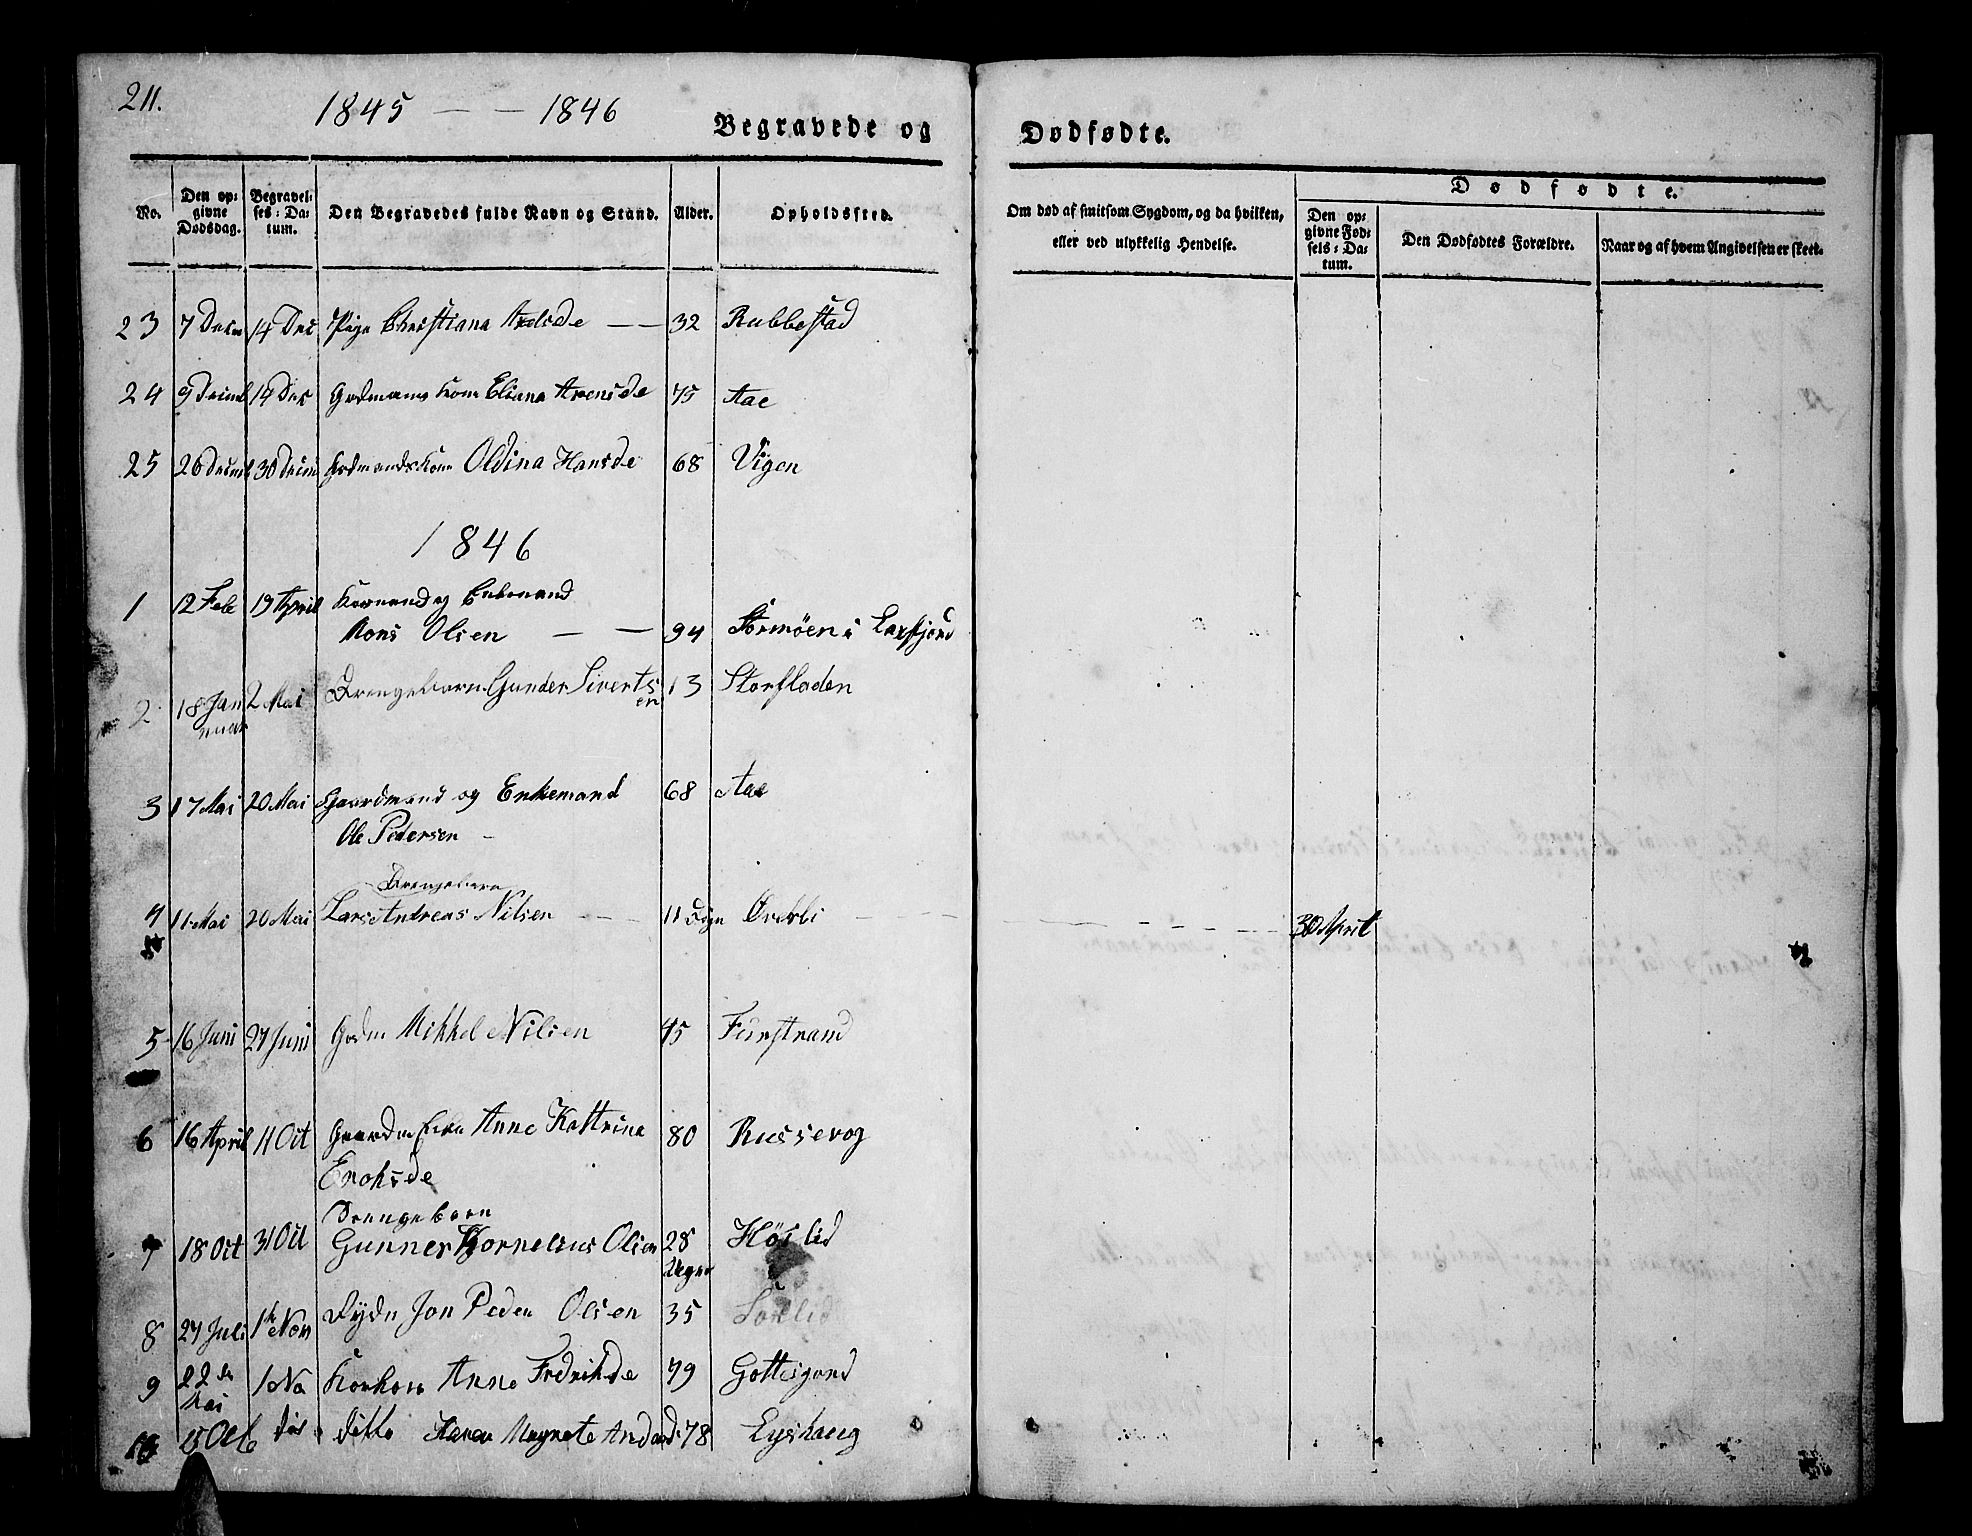 211.
1845 — — 1846
Begravede og Dødfødte.
No. Den opgivne Dødsdag. Begravelses-Datum. Den Begravedes fulde Navn og Stand. Alder. Opholdssted. Om død af smitsom Sygdom, og da hvilken, eller ved ulykkelig Hendelse. Dødfødte. Den opgivne Fødsels-Datum. Den Dødfødtes Forældre. Naar og af hvem Angivelsen er skeet.
23 7 Decm 14 Dec Pige Christiana — — 32 Rubbestad
24 9 Decmb 14 Dec Grdmans Kone Eliana Arensde 75 Aae
25 26 Decmb 30 Decm Grdmands Kone Oldina Hansde 68 Vigen
1846
1 12 Feb 19 April Kaarmand og Enkemand
Mons Olsen — — 94 Stormøen i Laxfjord
2 18 Januar 2 Mai Drengebarn Gunder Sivertsen 13 Storfladen
3 17 Mai 20 Mai Gaardmand og Enkemand 68 Aae
Ole Pedersen —
Drengebarn
4 11 Mai 20 Mai Lars Andreas Nilsen — — 11 Døgn 30 April
5 16 Juni 27 Juni Grdm Mikkel Nilsen 45 Finstrand
6 16 April 11 Oct Gaardm Enke Anne Kattrina 80 Russevog
Enoksde
Drengebarn
7 18 Oct 31 Oct Gunner Kornelius Olsen 28 Høslid
8 27 Juli 1 Nov Jon Peder Olsen 35
9 22 Mai 1 No Korkone Anne Fredriksde 79 Gottesjord
10 Octb ditto Karen Magrete 78 Lyshaug